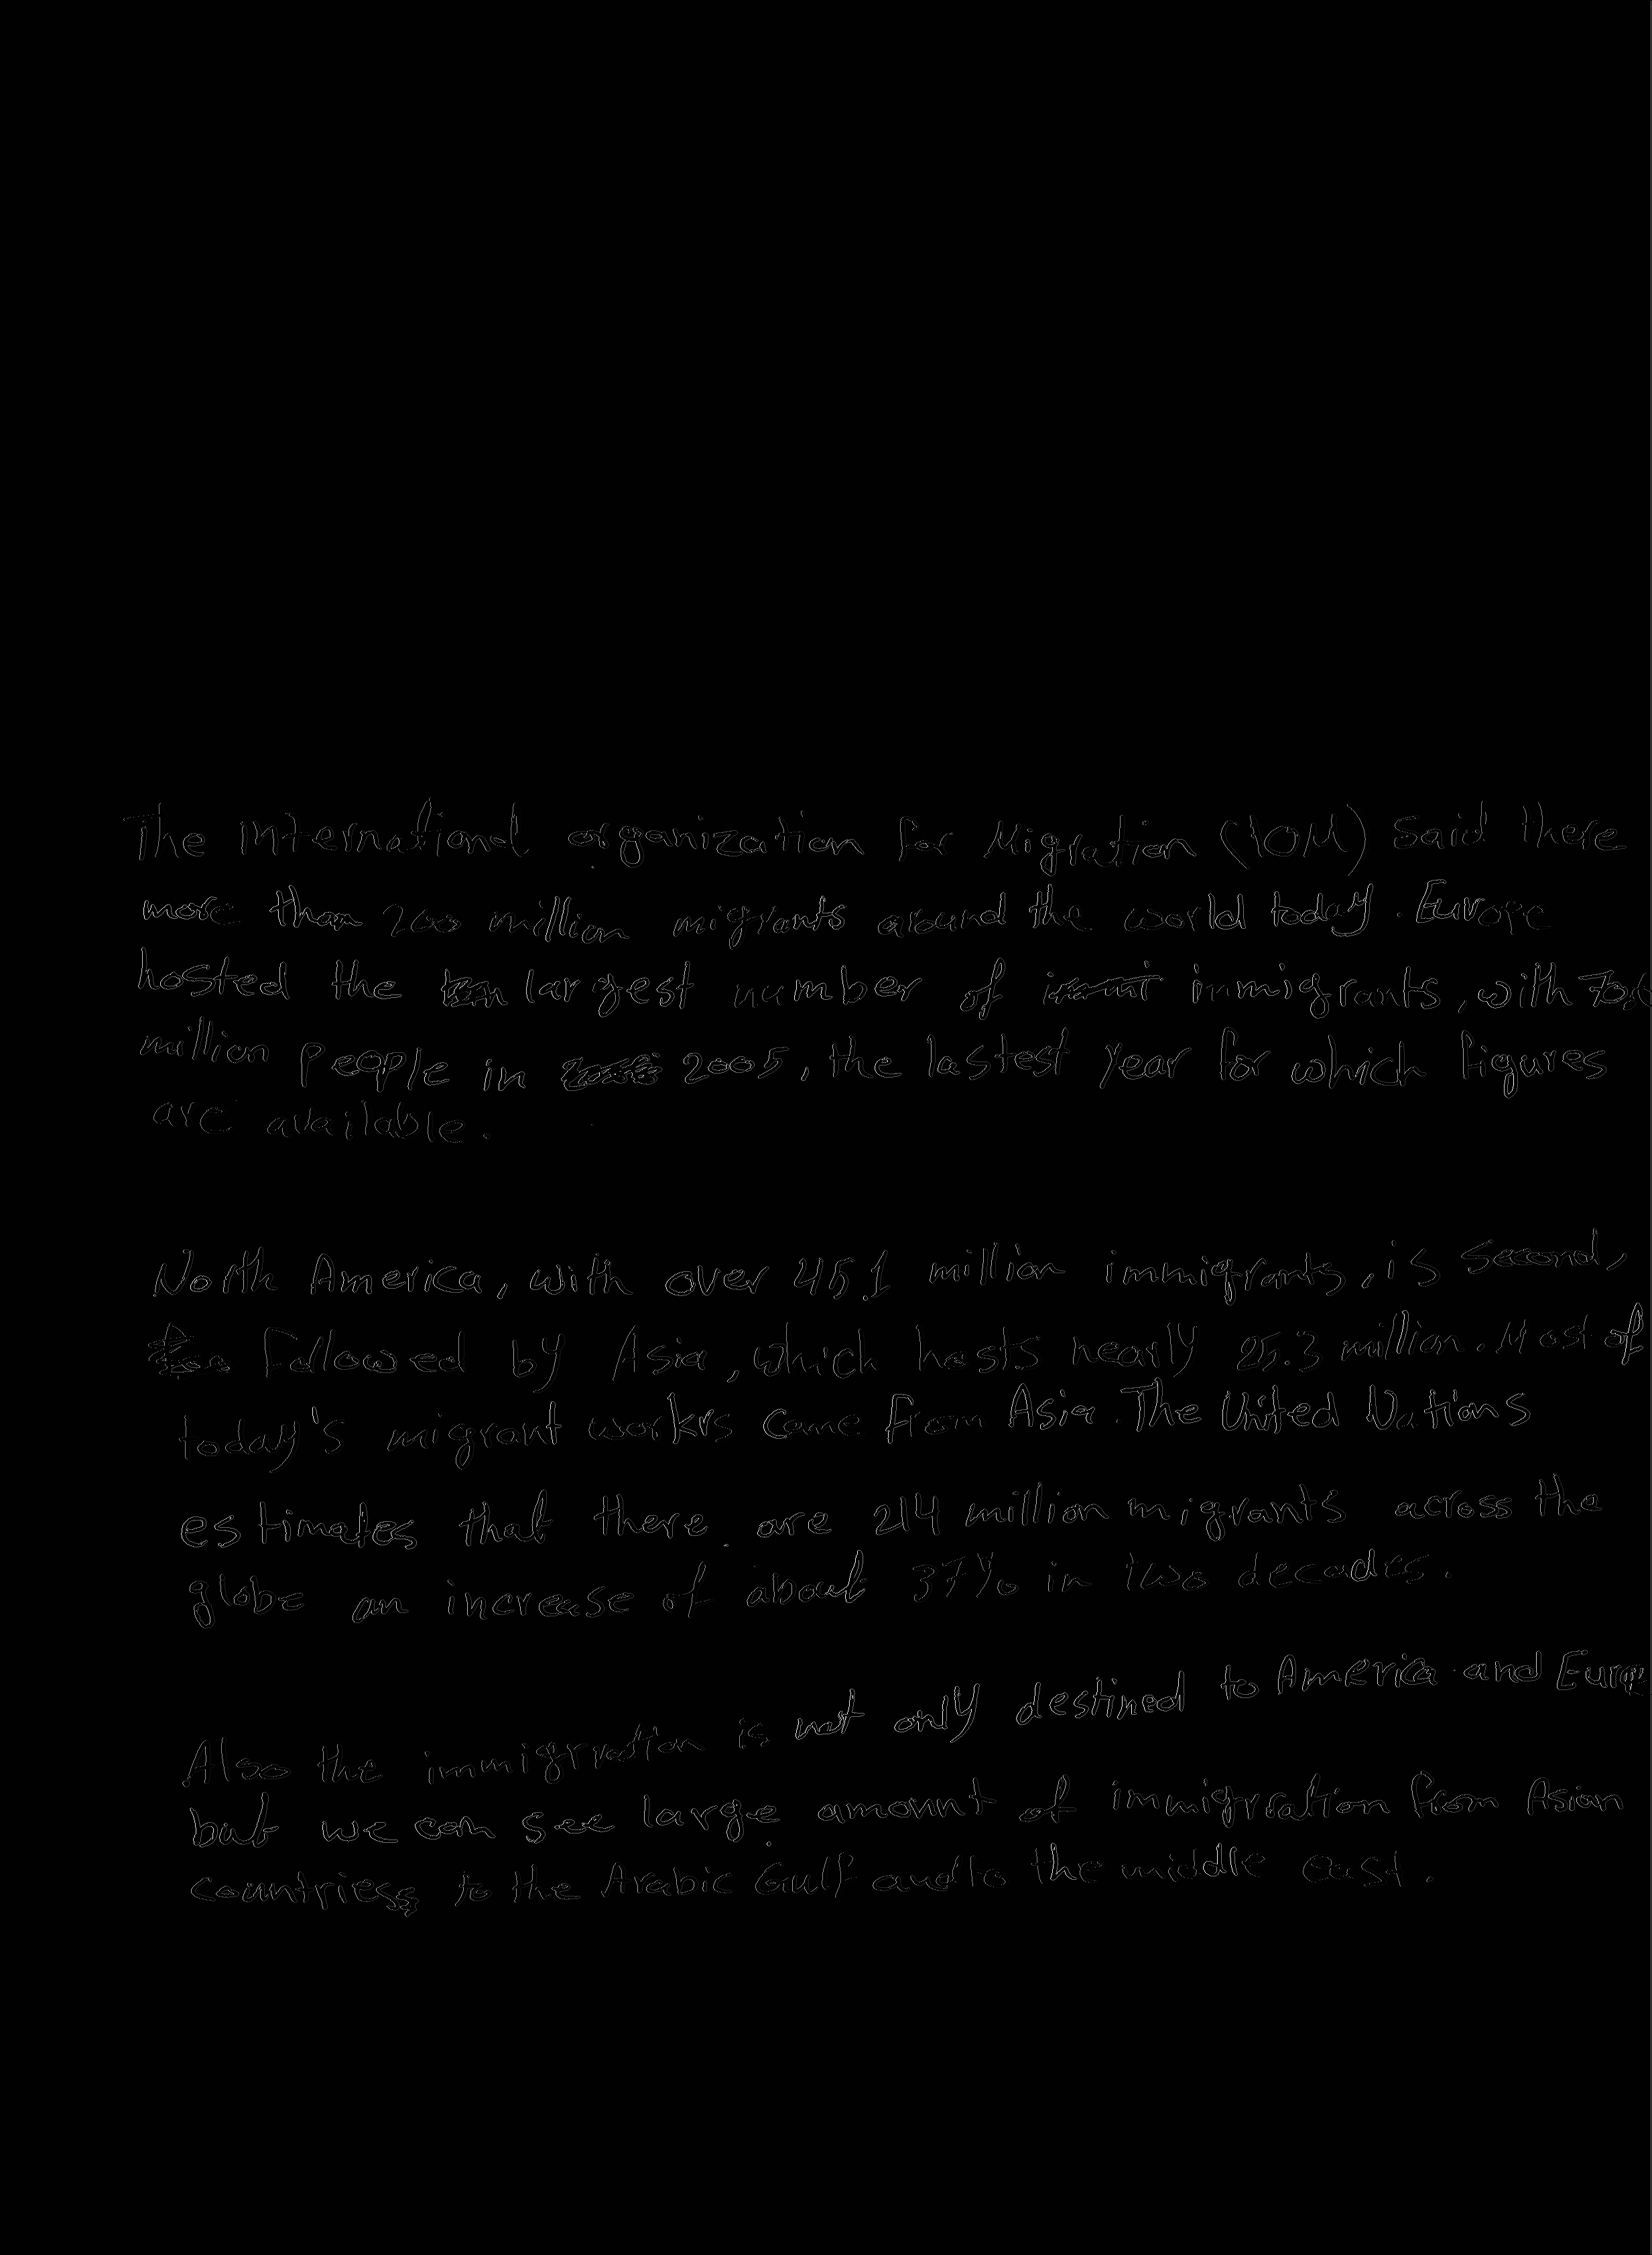 The International organization for Migration (IOM) said there
more than 200 million migrants around the world today. Europe
hosted the largest number of immigrants, with 70.6
million people in 2005, the lastest year for which figures
are available.
North America, with over 45.1 million immigrants, is second,
Followed by Asia, which hosts nearly 25.3 million. Most of
today's migrant workrs come from Asia. The United Nations
estimates that there are 214 million migrants across the
globe an increase of about 37% in two decades.
Also the immigration is not only destined to America and Europe
but we can see large amount of immigration from Asian
countries to the Arabic Gulf and to the middle east.